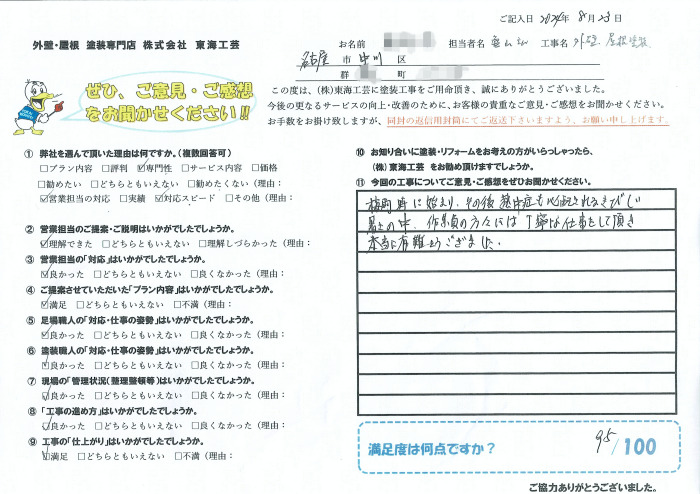 ご記入日 2024年 8月 23日
外壁・屋根 塗装専門店 株式会社 東海工芸
お名前
担当者名 亀山さん 工事名 外壁、屋根塗装
名古屋 市 中川 区
群 町
ぜひ、ご意見・ご感想
をお聞かせください!!
この度は、(株)東海工芸に塗装工事をご用命頂き、誠にありがとうございました。
今後の更なるサービスの向上・改善のために、お客様の貴重なご意見・ご感想をお聞かせください。
お手数をお掛け致しますが、同封の返信用封筒にてご返送下さいますよう、お願い申し上げます。
① 弊社を選んで頂いた理由は何ですか。(複数回答可)
□プラン内容 □評判 ☑専門性 □サービス内容 □価格
□勧めたい □どちらともいえない □勧めたくない(理由:
☑営業担当の対応 □実績 ☑対応スピード □その他(理由:
② 営業担当のご提案・ご説明はいかがでしたでしょうか。
☑理解できた □どちらともいえない □理解しづらかった(理由:
③ 営業担当の「対応」はいかがでしたでしょうか。
☑良かった □どちらともいえない □良くなかった(理由:
④ ご提案させていただいた「プラン内容」はいかがでしたでしょうか。
☑満足 □どちらともいえない □不満(理由:
⑤ 足場職人の「対応・仕事の姿勢」はいかがでしたでしょうか。
☑良かった □どちらともいえない □良くなかった(理由:
⑥ 塗装職人の「対応・仕事の姿勢」はいかがでしたでしょうか。
☑良かった □どちらともいえない □良くなかった(理由:
⑦ 現場の「管理状況(整理整頓等)はいかがでしたでしょうか。
☑良かった □どちらともいえない □良くなかった(理由:
⑧ 「工事の進め方」はいかがでしたでしょうか。
☑良かった □どちらともいえない □良くなかった(理由:
⑨ 工事の「仕上がり」はいかがでしたでしょうか。
☑満足 □どちらともいえない □不満(理由:
⑩ お知り合いに塗装・リフォームをお考えの方がいらっしゃったら、
(株)東海工芸 をお勧め頂けますでしょうか。
⑪ 今回の工事についてご意見・ご感想をぜひお聞かせください。
梅雨時に始まり、その後熱中症も心配されるきびしい
暑さの中、作業員の方々には丁寧な仕事をして頂き
本当に有難とうございました。
満足度は何点ですか? 95/100
ご協力ありがとうございました。